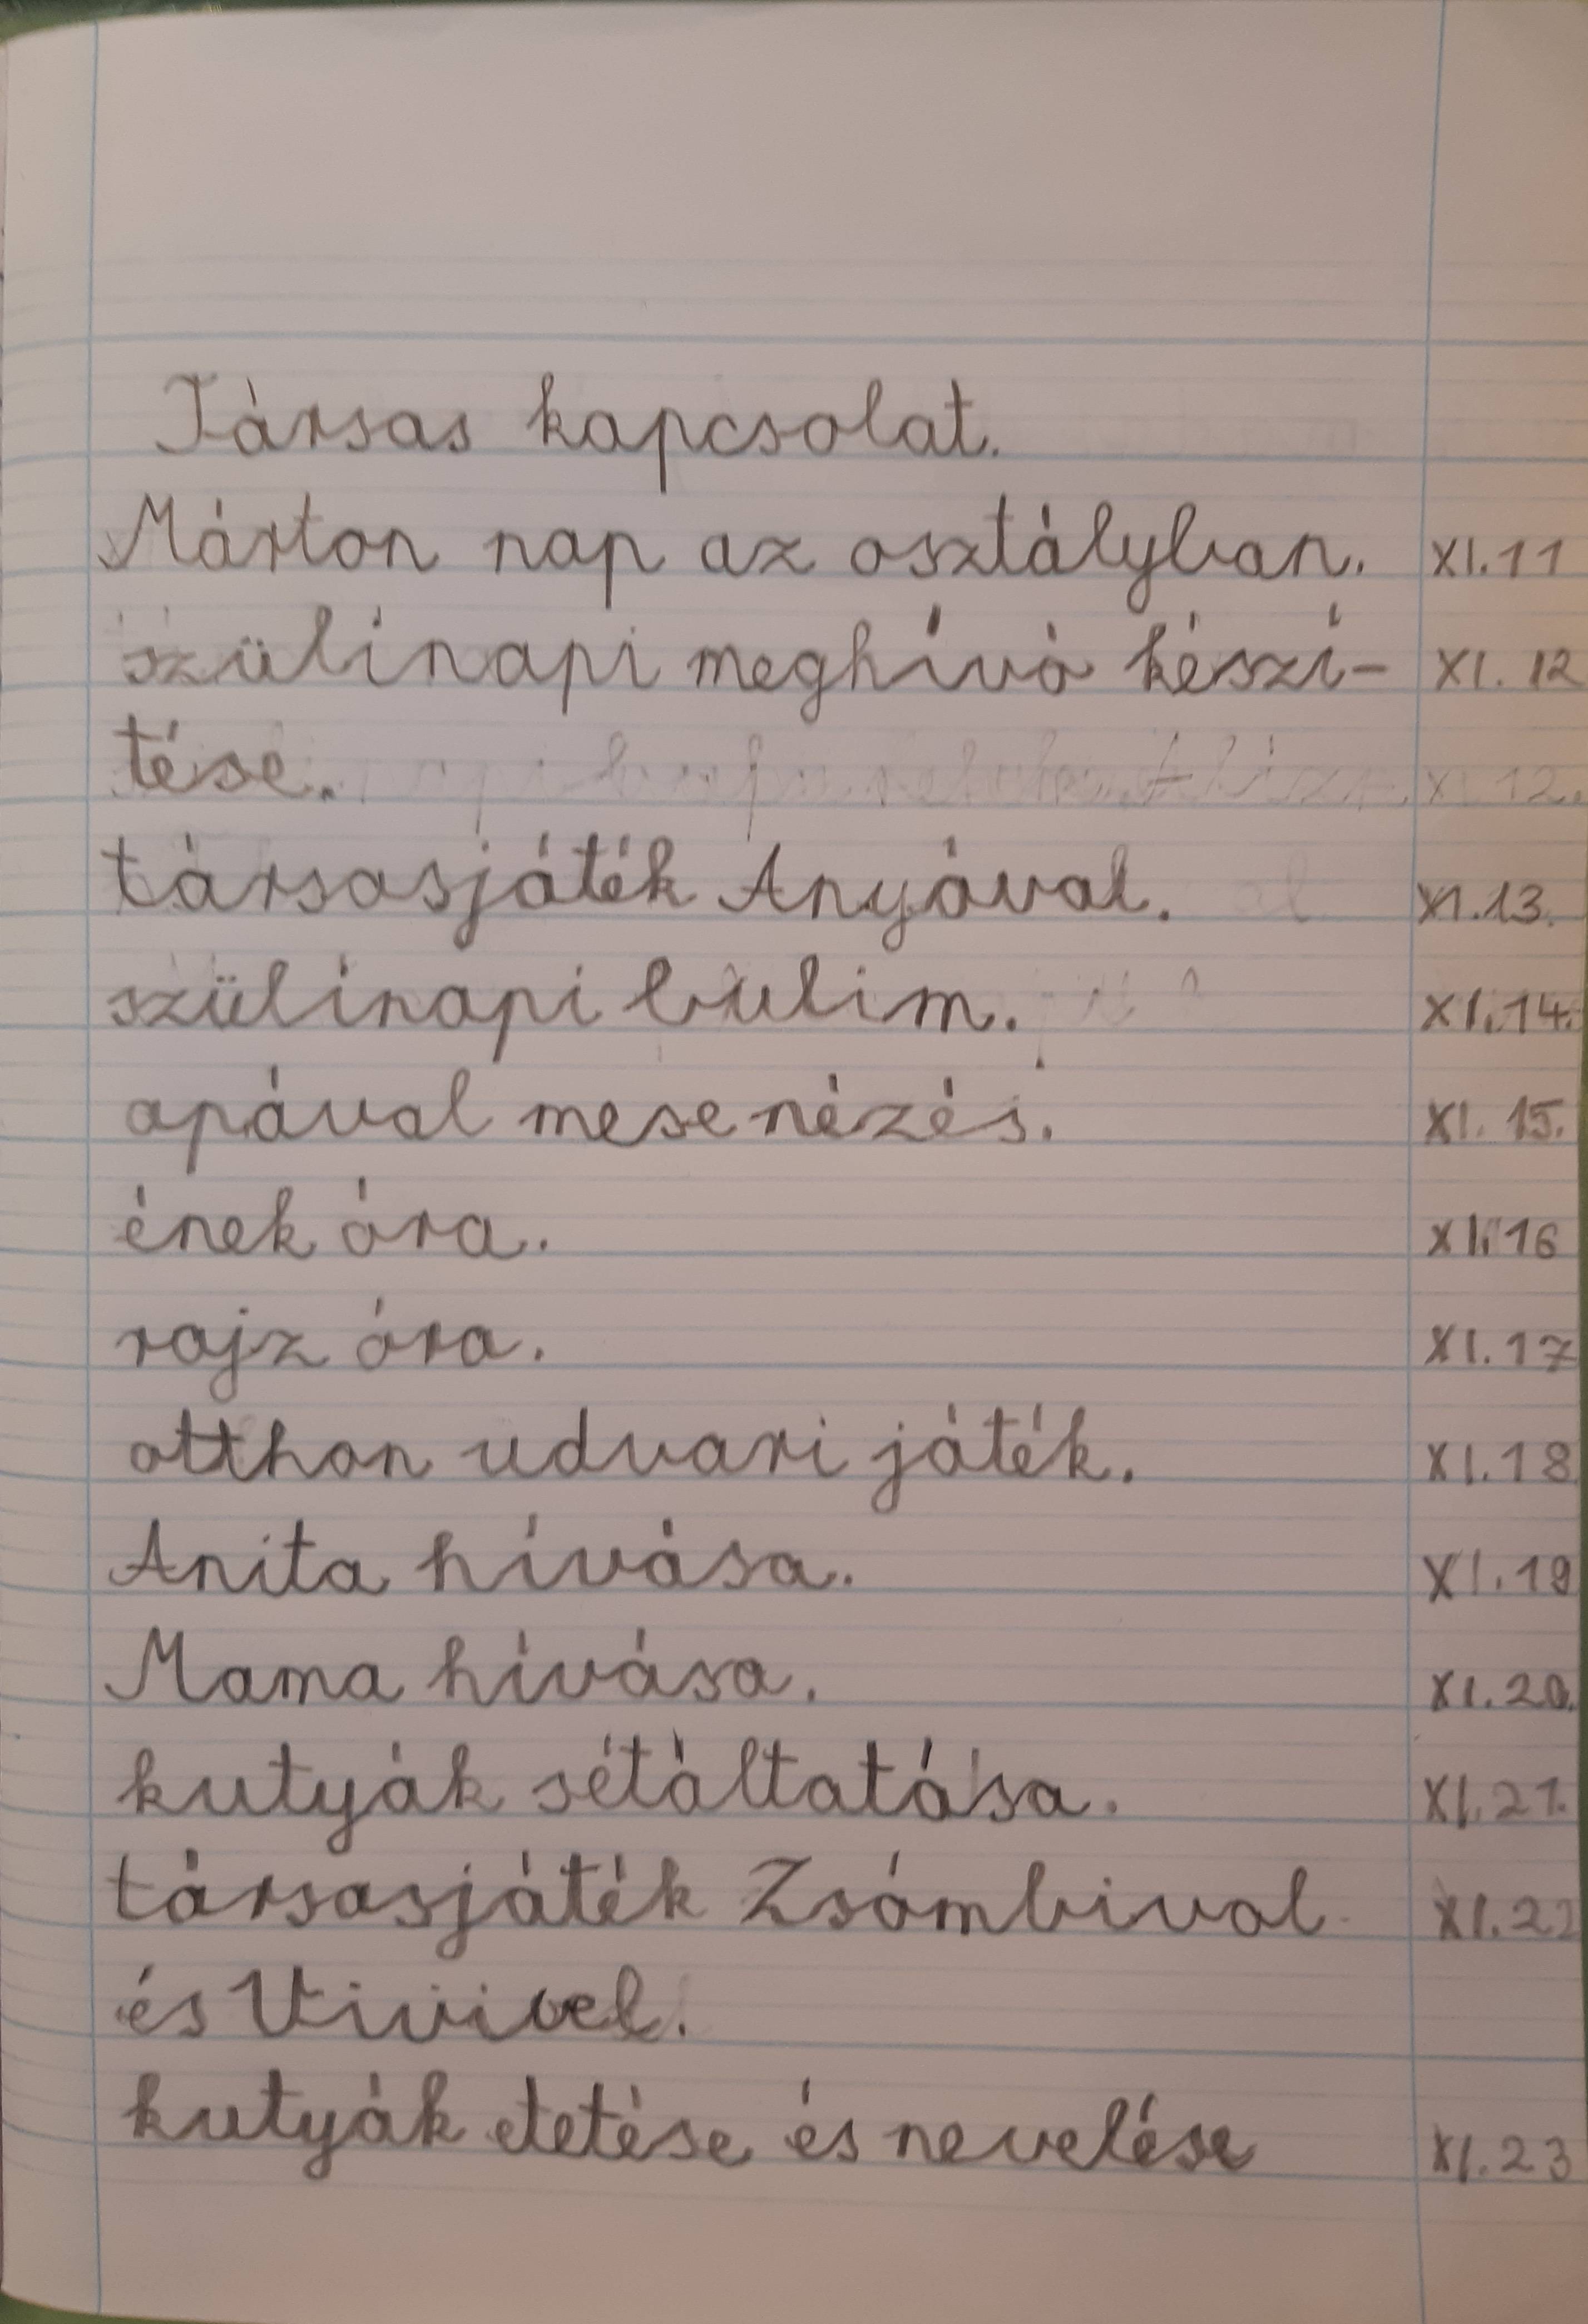 Társas kapcsolat.
Márton nap az osztályban. XI.11
szülinapi meghívó készí- XI. 12
tése. XI.12.
társasjáték Anyával. XI.13.
szülinapi bulim. XI.14.
apával mese nézés. XI. 15.
ének óra. XI.16
rajz óra. XI.17
otthon udvari játék. XI.18
Anita hívása. XI.19
Mama hívása. XI.20.
kutyák sétáltatása. XI.21.
társasjáték Zsómbival XI.22
és Vivivel.
kutyák etetése és nevelése XI.23